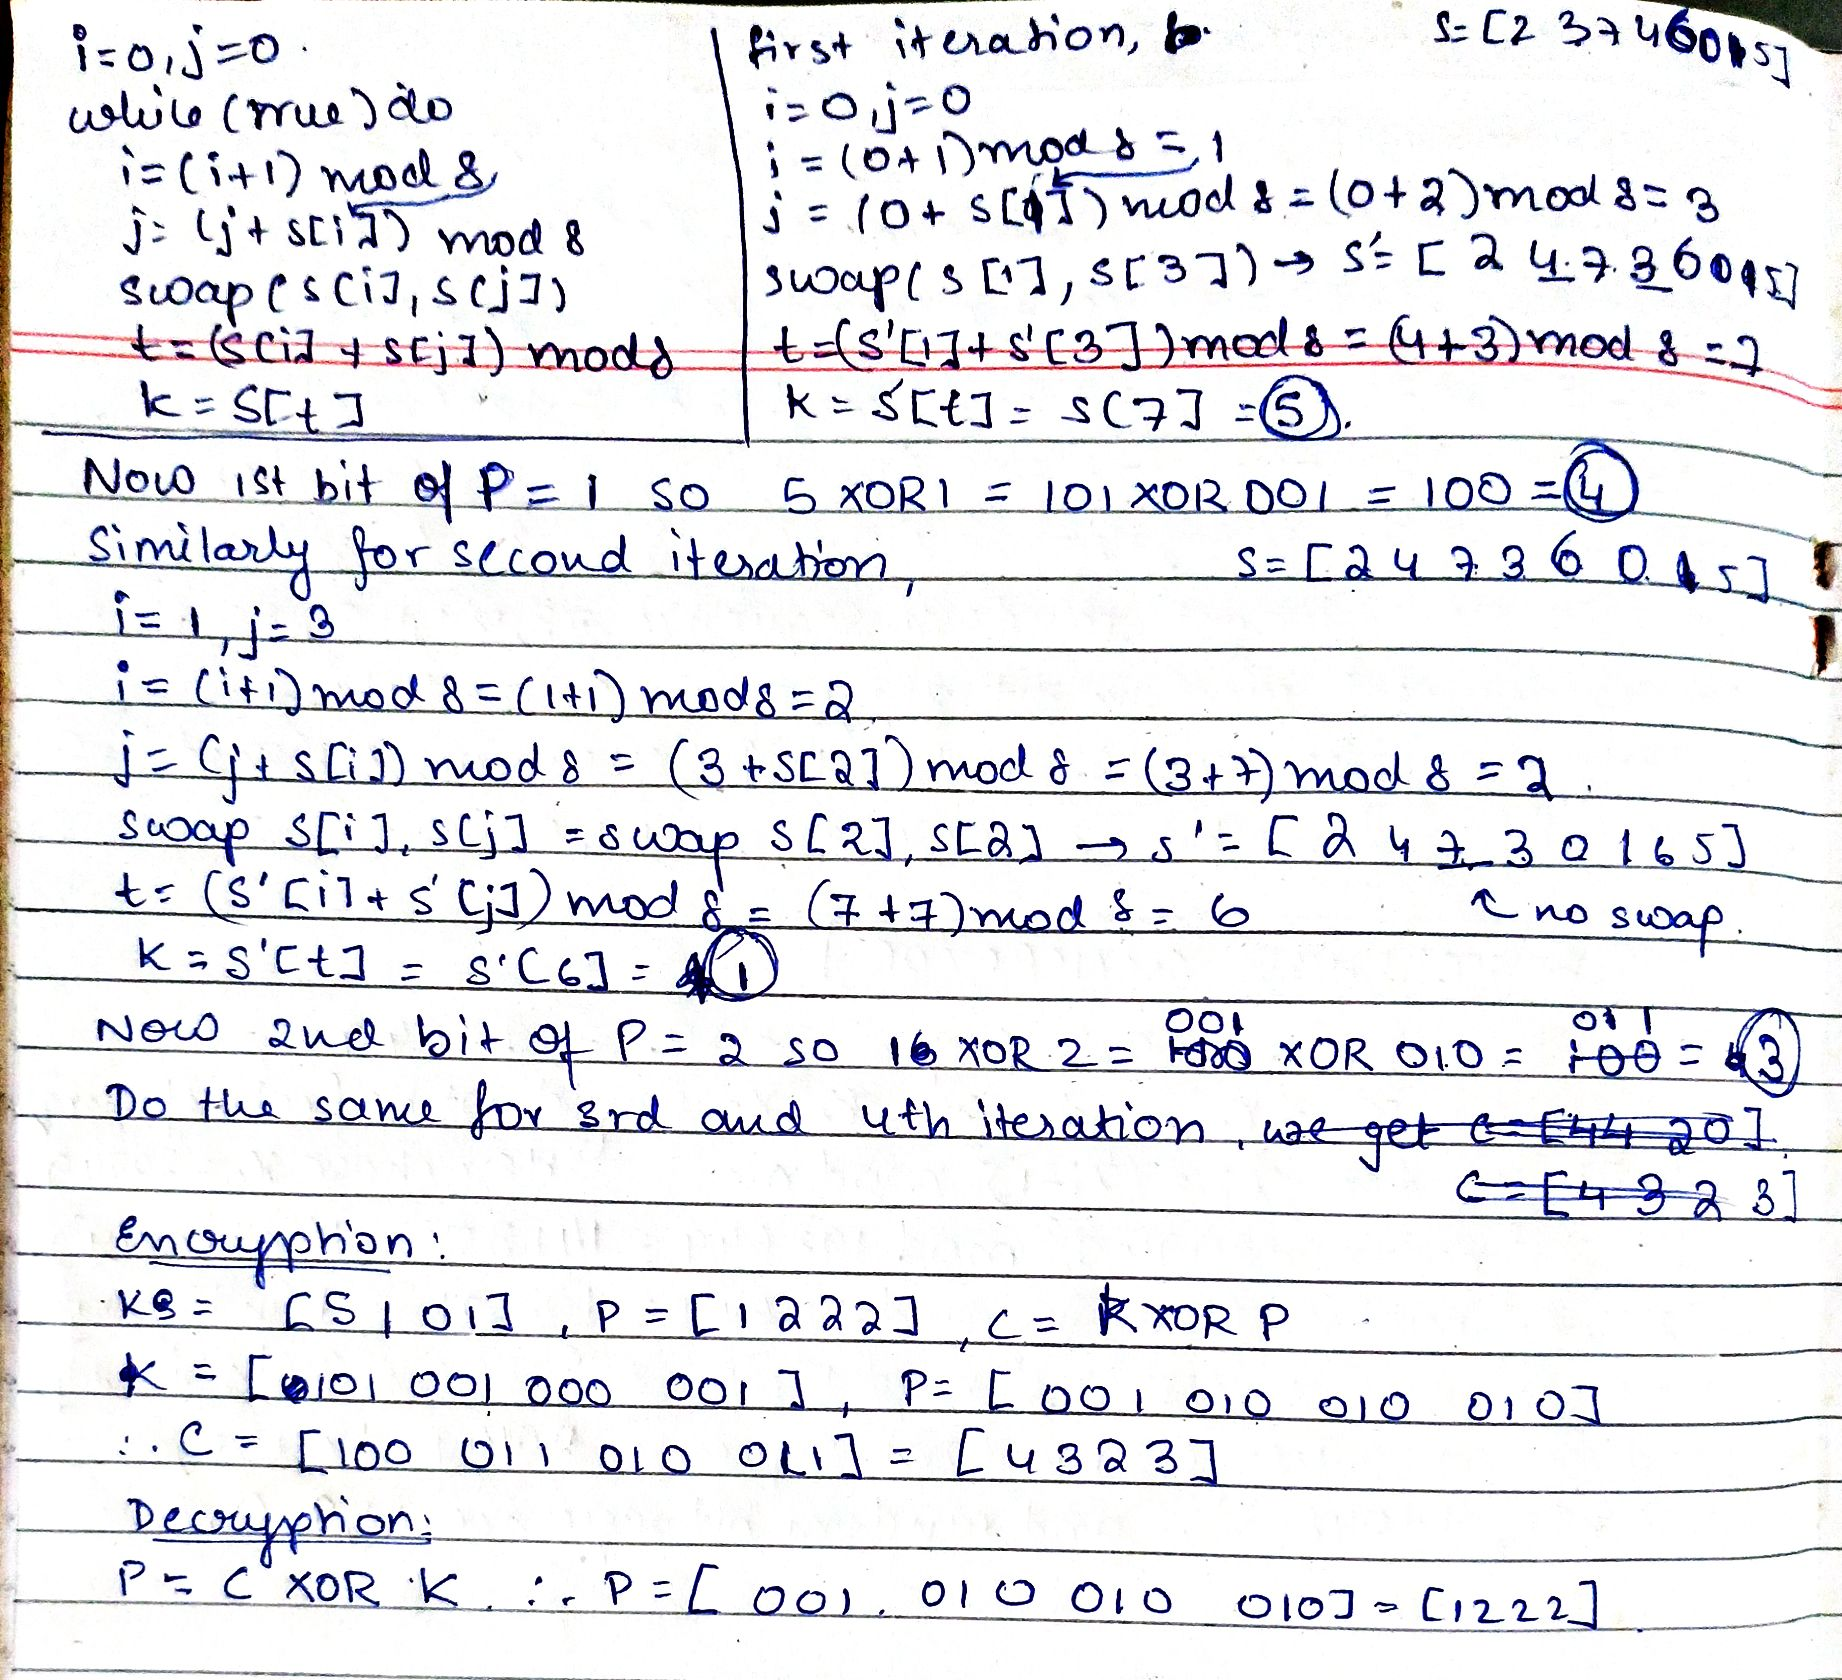 i=0, j=0.
while (true) do
i=(i+1) mod 8
j= (j+ s[i]) mod 8
swap(s[i], s[j])
t=(s[i] + s[j]) mod 8
k = S[t]
first iteration,
S= [2 3 7 4 6 0 1 5]
i=0, j=0
i = (0+1) mod 8 = 1
j = (0+ s[1]) mod 8 = (0+2) mod 8 = 3
swap(s[1], s[3]) → s'= [ 2 4 7 3 6 0 1 5]
t=(s'[1]+ s'[3]) mod 8 = (4+3) mod 8 = 7
k = s'[t] = s[7] = 5.
Now 1st bit of P = 1 so 5 XOR 1 = 101 XOR 001 = 100 = 4
Similarly for second iteration, s= [2 4 7 3 6 0 1 5]
i= 1, j= 3
i = (i+1) mod 8 = (1+1) mod 8 = 2
j = (j+ s[i]) mod 8 = (3 +s[2]) mod 8 = (3+7) mod 8 = 2.
swap s[i], s[j] = swap s[2], s[2] → s' = [ 2 4 7 3 0 1 6 5]
t= (s'[i]+ s'[j]) mod 8 = (7 +7) mod 8 = 6 ↖ no swap.
K = s'[t] = s'[6] = 1
001 011
Now 2nd bit of P = 2 so 1 XOR 2 = XOR 010 = 100 = 3
Do the same for 3rd and 4th iteration, we get C=[44 20].
C = [4 3 2 3]
Encryption:
KS = [5 1 0 1], P = [1 2 2 2], C = K XOR P
K = [101 001 000 001], P= [ 001 010 010 010]
∴ C = [100 011 010 011] = [4 3 2 3]
Decryption:
P = C XOR K. ∴ P = [ 001. 010 010 010] = [1222].